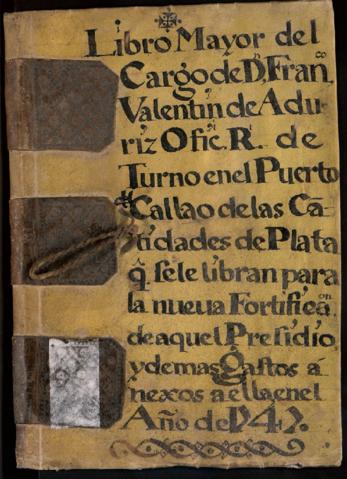 Libro Mayor del
Cargo de D.ⁿ Fran.ᶜᵒ
Valentin de Adu-
riz Ofic.ˡ R.ˡ de
Turno en el Puerto
Callao de las Cã-
tidades de Plata
q̃ se le libran para
la nueua Fortificaⁿ
de aquel Presidio,
y demas gastos á-
nexos a ella en el
Año de 1747.